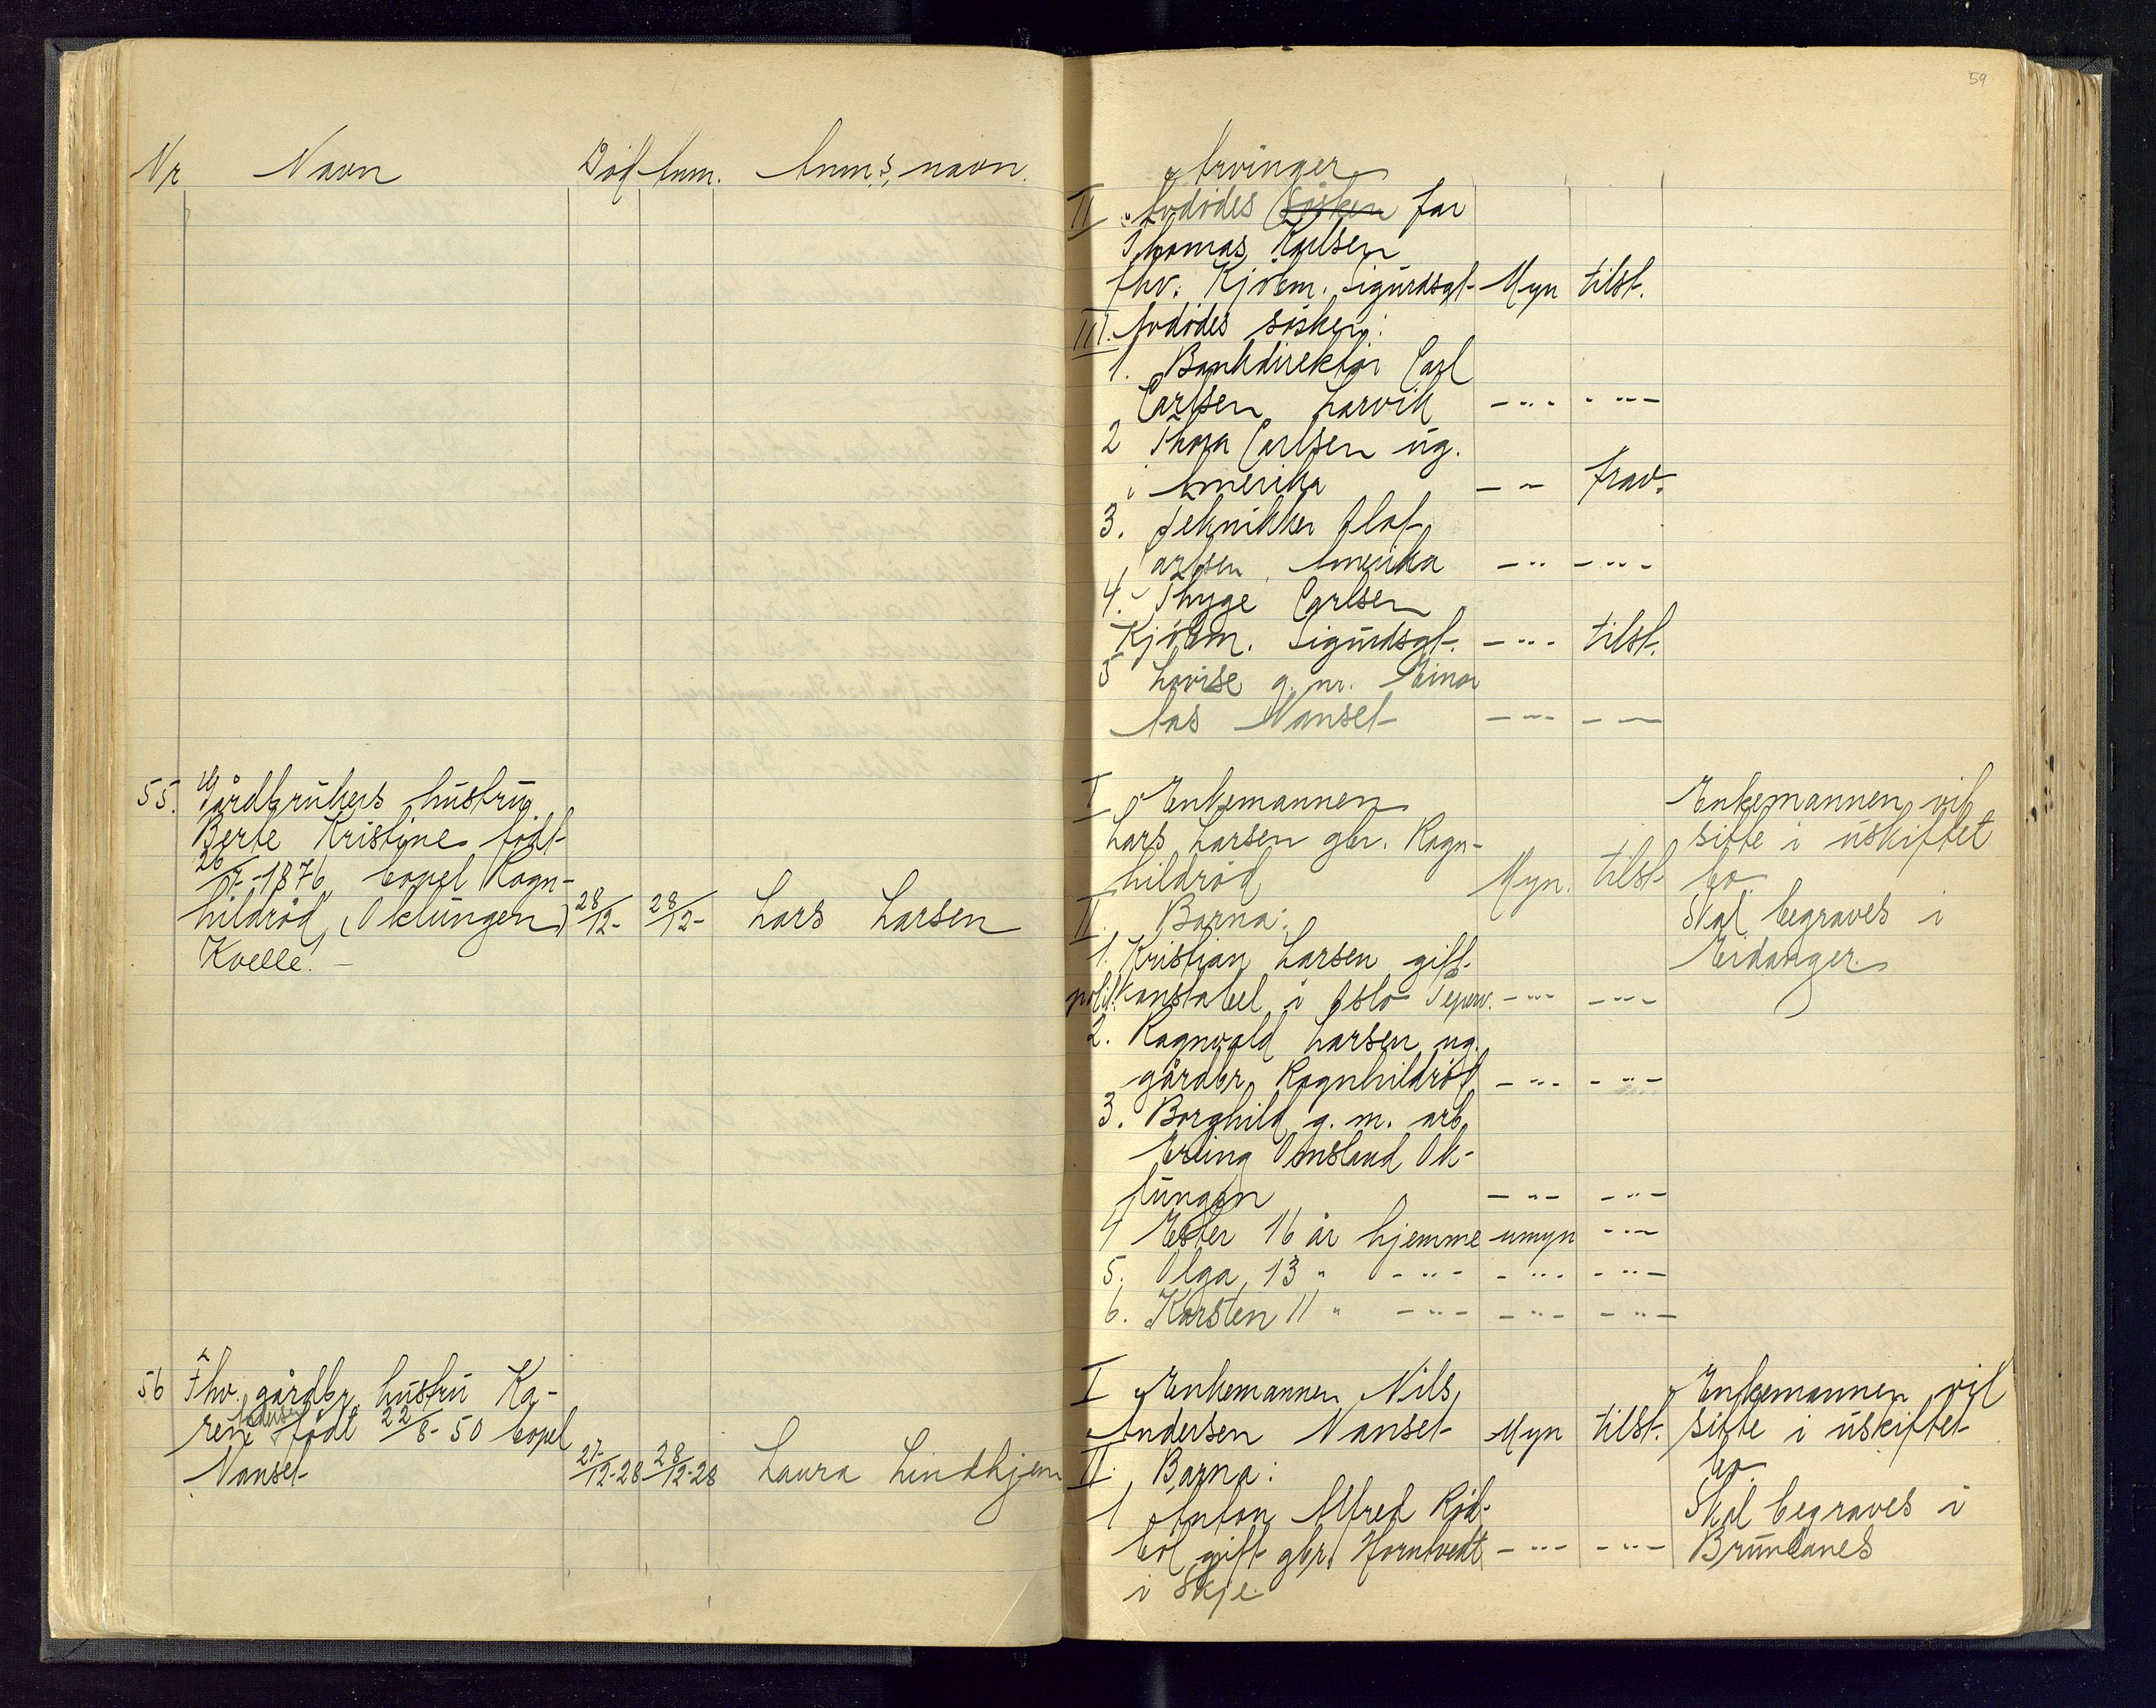 59
Nr Navn Död Anm. Anm.s, navn.
Arvinger
II Avdödes sösken far
Thomas Karlsen
fhv. Kjöbm. Sigurdsgt. Myn tilst.
III. Avdödes sösken:
1. Bankdirektör Carl
Carlsen Larvik -"- -"-
2 Thora Carlsen ug.
i Amerika -"- frav.
3. Tekniker Olaf
Carlsen, Amerika -"- -"-
4. Thyge Carlsen
Kjöbm. Sigurdsgt. -"- tilst.
5 Lovise g. m. Einar
Aas Nanset -"- -"-
55. Gårdbrukers hustru
Berte Kristine födt
26/7-1876, bopel Ragn-
hildröd, (Oklungen) 28/12- 28/12- Lars Larsen
Kvelle.-
I Enkemannen
Lars Larsen gbr. Ragn-
hildröd Myn. tilst.
II. Barna:
1. Kristian Larsen gift.
polit.konstabel i Oslo -"- -"-
2. Ragnvald Larsen ug.
gårdbr. Ragnhildröd -"- -"-
3. Borghild g. m. arb.
Erling Omsland Ok-
lungen -"- -"-
4 Ester 16 år hjemme umyn -"-
5. Olga, 13 " -"- -"- -"-
6. Karsten 11 " -"- -"- -"-
Enkemannen vil
sitte i uskiftet
bo.
Skal begraves i
Eidanger.
56 Fhv. gårdbr. hustru Ka-
ren Andersen födt 22/8-50 bopel
Nanset 27/12-28 28/12-28 Laura Lindhjem
I Enkemannen Nils
Andersen Nanset Myn tilst.
II. Barna:
1 Anton Alfred Röd-
böl gift gbr. Horntvedt -"- -"-
i Skje
Enkemannen vil
sitte i uskiftet
bo.
Skal begraves i
Brunlanes